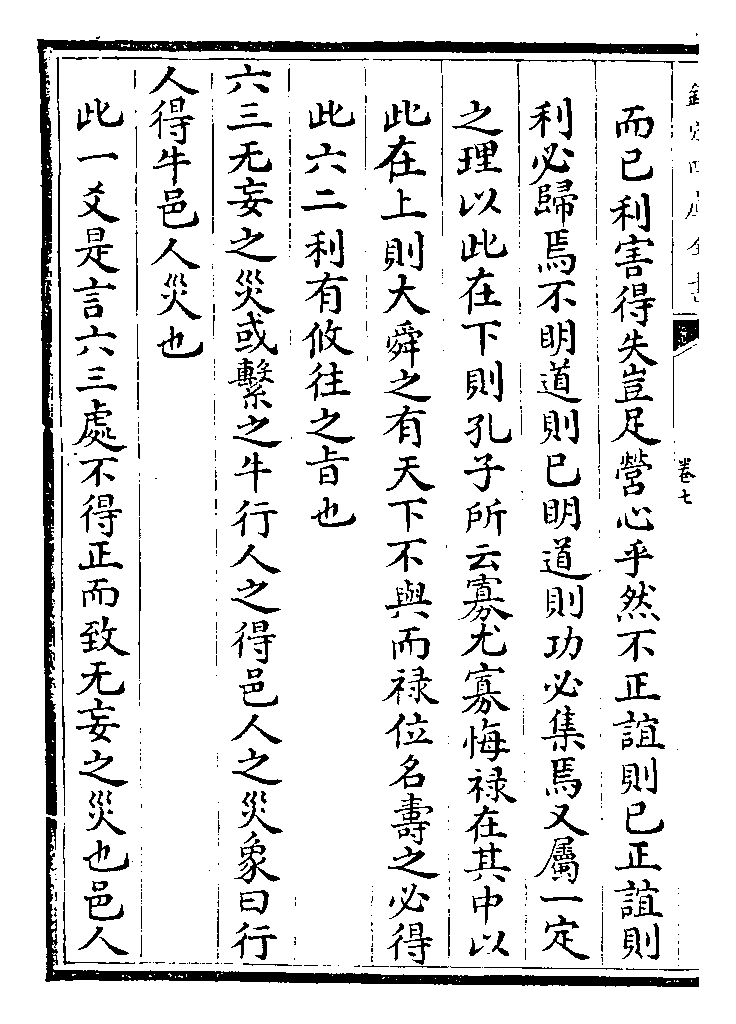 欽定四庫全書
卷七
而已利害得失豈足營心乎然不正誼則已正誼則
利必歸焉不明道則已明道則功必集焉又屬一定
之理以此在下則孔子所云寡尤寡悔禄在其中以
此在上則大舜之有天下不與而禄位名壽之必得
此六二利有攸往之旨也
六三无妄之災或繫之牛行人之得邑人之災象曰行
人得牛邑人災也
此一爻是言六三處不得正而致无妄之災也邑人